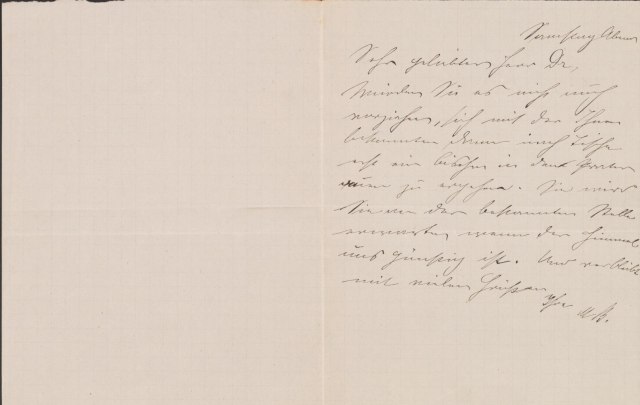 Samstag Abend
Sehr geliebter Herr Dr,
Würden Sie es nicht auch
vorziehen, sich mit der Ihnen
bekannten Dame nach Tische
erst ein bischen in den Prater
auen zu ergehen. Sie wird
Sie an der bekannten Stelle
erwarten wenn der Himmel
uns günstig ist. Und verbleibt
mit vielen Grüßen
Ihre